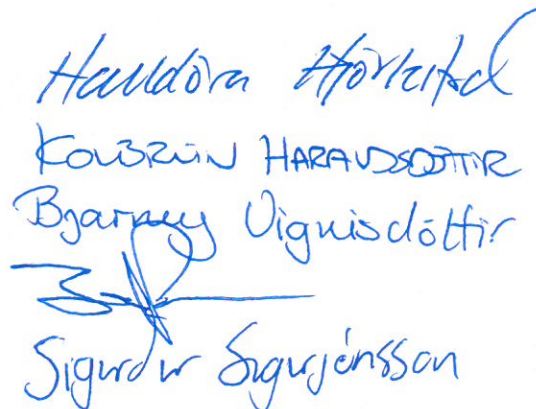 Halldóra Hjörleifsd
KOLBRÚN HARALDSDÓTTIR
Bjarney Vignisdóttir
Sigurdur Sigurjónsson